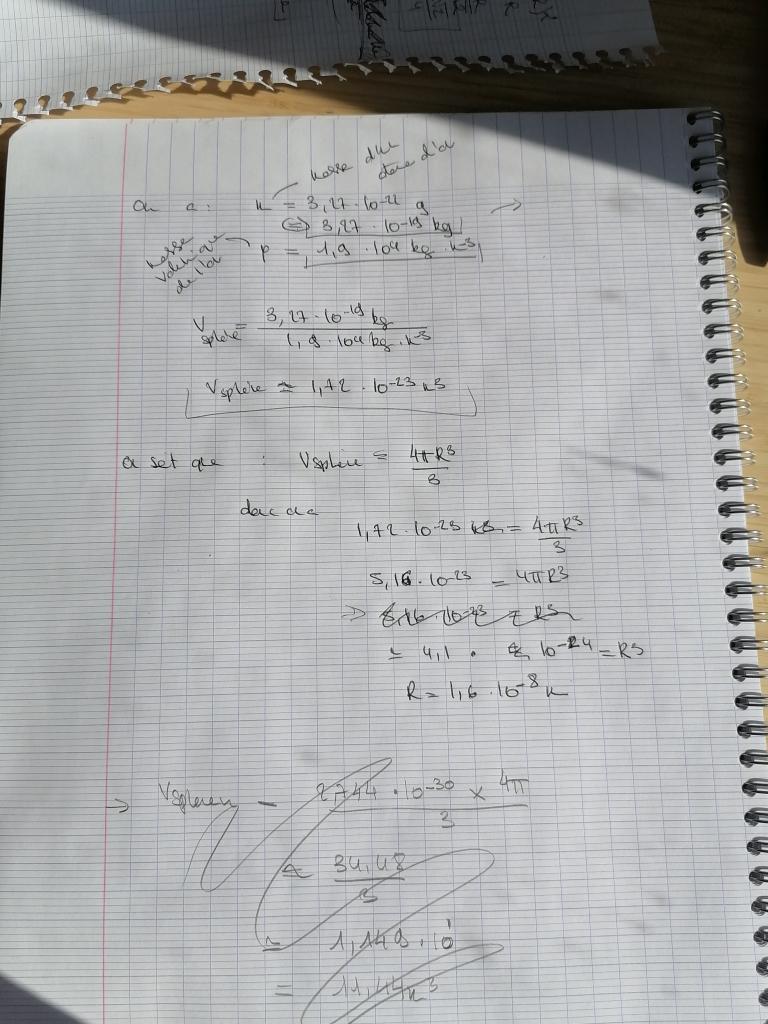 masse d'un
atome d'or
on a : m = 3,27 · 10-22 g
⇔ 3,27 · 10-19 kg
masse volumique de l'or
ρ = 1,9 · 104 kg · m-3
Vsphère = 3,27 · 10-19 kg / 1,9 · 104 kg · m-3
Vsphère ≃ 1,72 · 10-23 m3
on sait que : Vsphère = 4πR3 / 3
donc on a
1,72 · 10-23 m3 = 4πR3 / 3
5,16 · 10-23 = 4πR3
⇒ 5,16 · 10-23 = R3
≃ 4,1 · 10-24 = R3
R = 1,6 · 10-8 m
→ Vsphère = 2744 · 10-30 × 4π / 3
≃ 34,48 / 3
≃ 1,149 · 10
= 11,44 m3